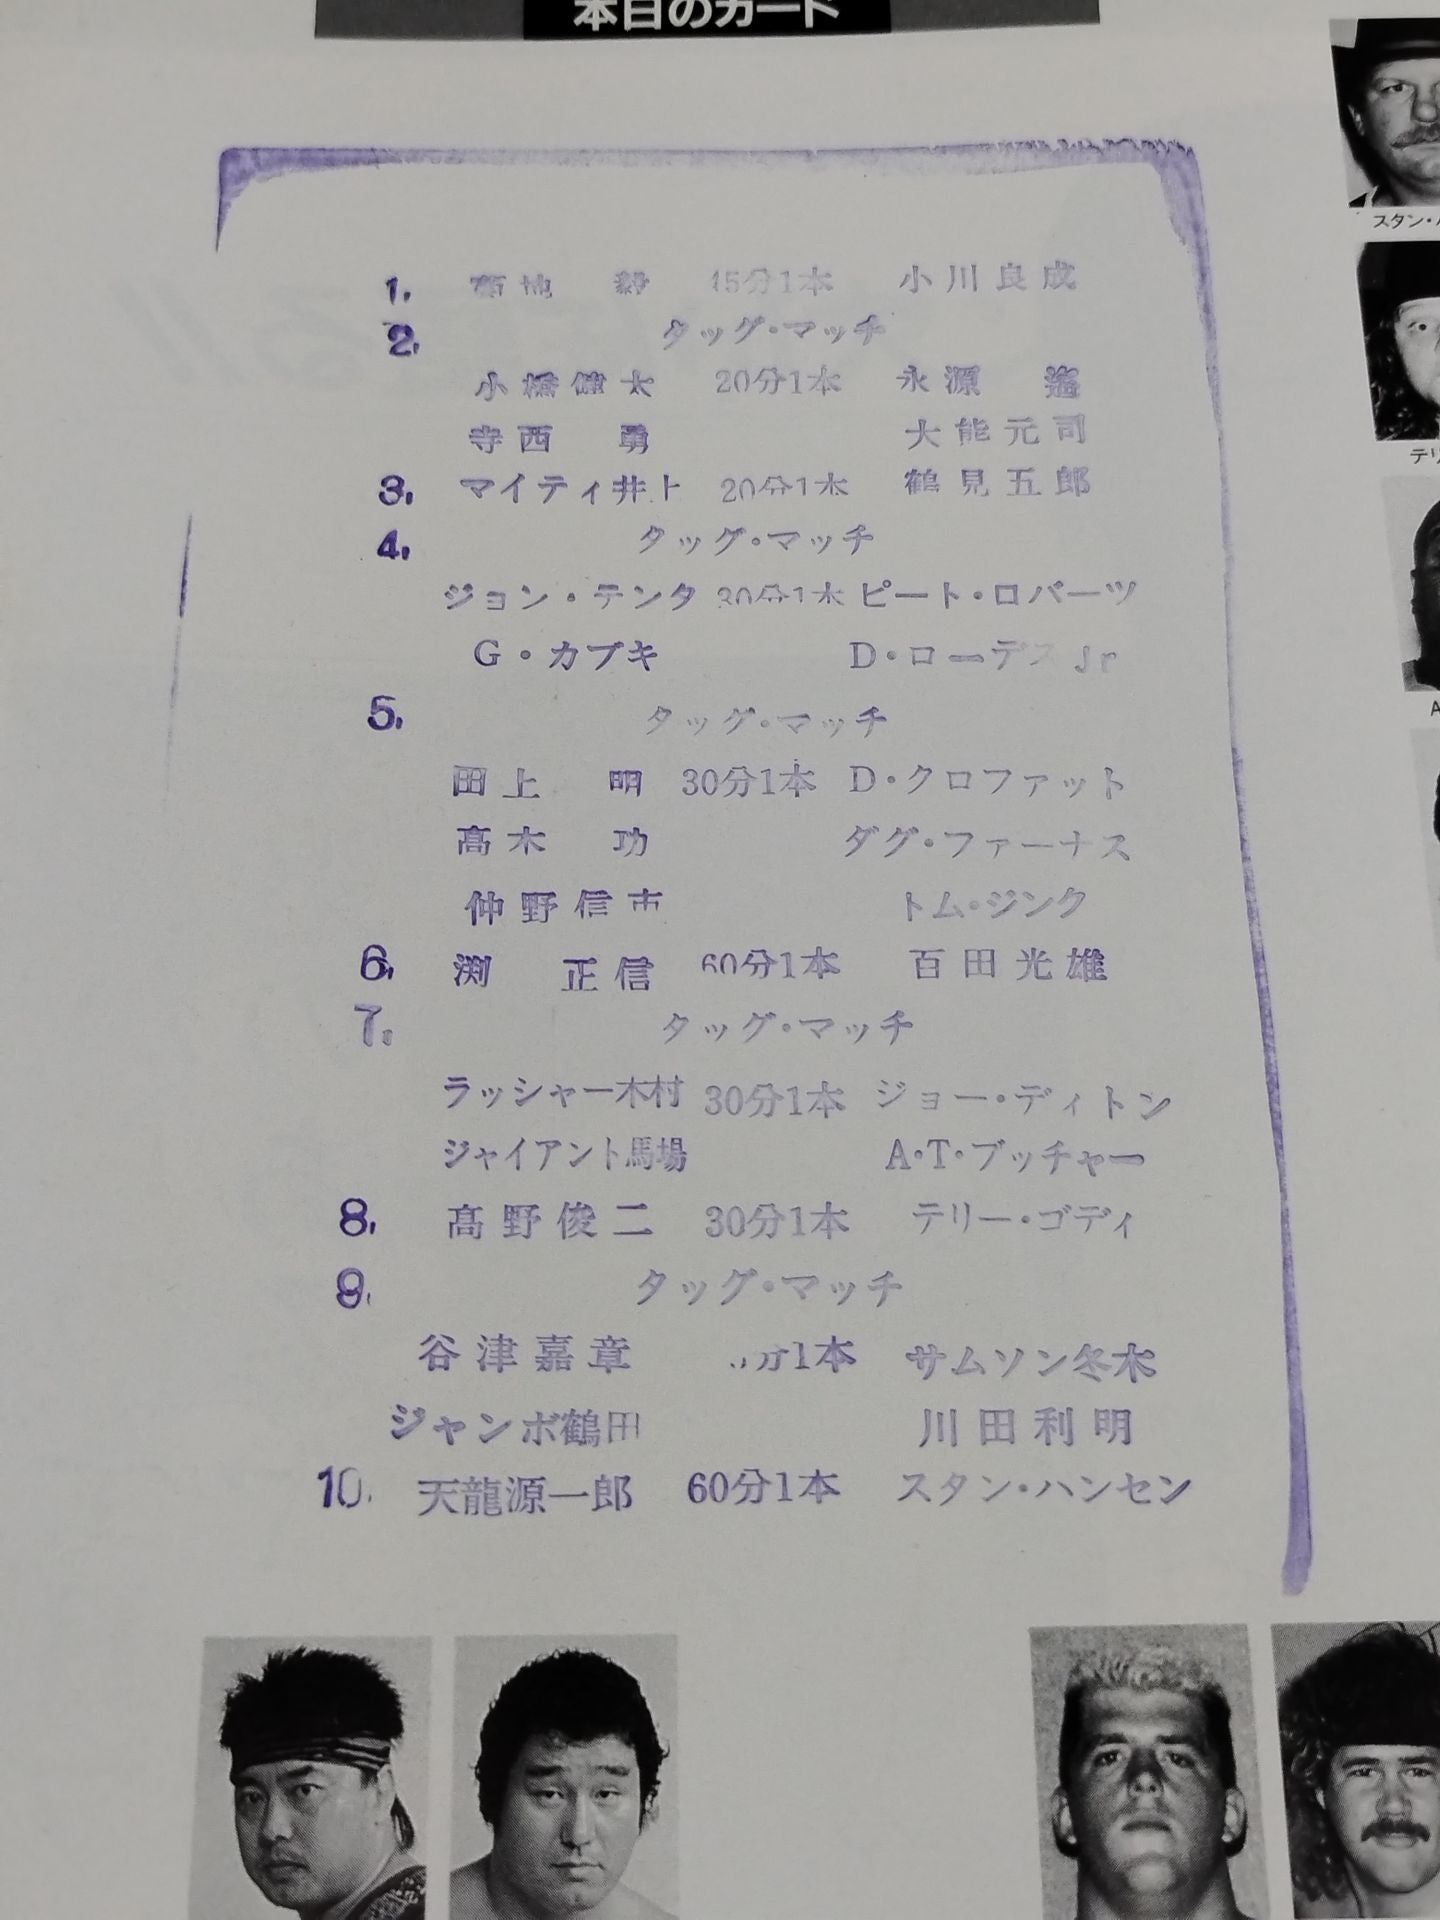 本日のカード
1. 菊地 毅 45分1本 小川良成
2. タッグ・マッチ
小橋健太 20分1本 永源 遙
寺西 勇 大熊元司
3. マイティ井上 20分1本 鶴見五郎
4. タッグ・マッチ
ジョン・テンタ 30分1本 ピート・ロバーツ
G・カブキ D・ローデス Jr
5. タッグ・マッチ
田上 明 30分1本 D・クロファット
高木 功 ダグ・ファーナス
仲野信市 トム・ジンク
6. 渕 正信 60分1本 百田光雄
7. タッグ・マッチ
ラッシャー木村 30分1本 ジョー・ディトン
ジャイアント馬場 A・T・ブッチャー
8. 高野俊二 30分1本 テリー・ゴディ
9. タッグ・マッチ
谷津嘉章 分1本 サムソン冬木
ジャンボ鶴田 川田利明
10. 天龍源一郎 60分1本 スタン・ハンセン
スタン・
テリ
A